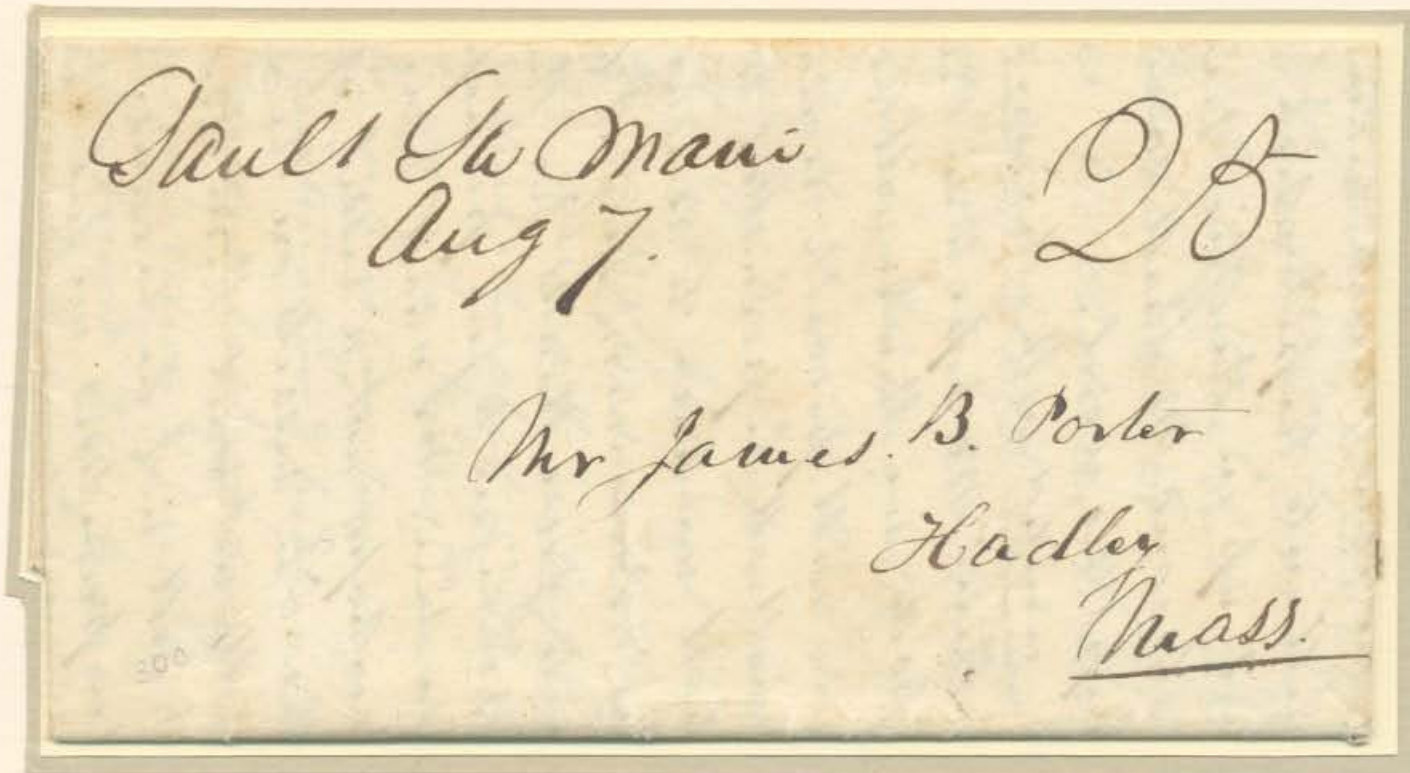 Sault Ste Marie 25
Aug 7.
Mr James. B. Porter
Hadley
Mass.
200